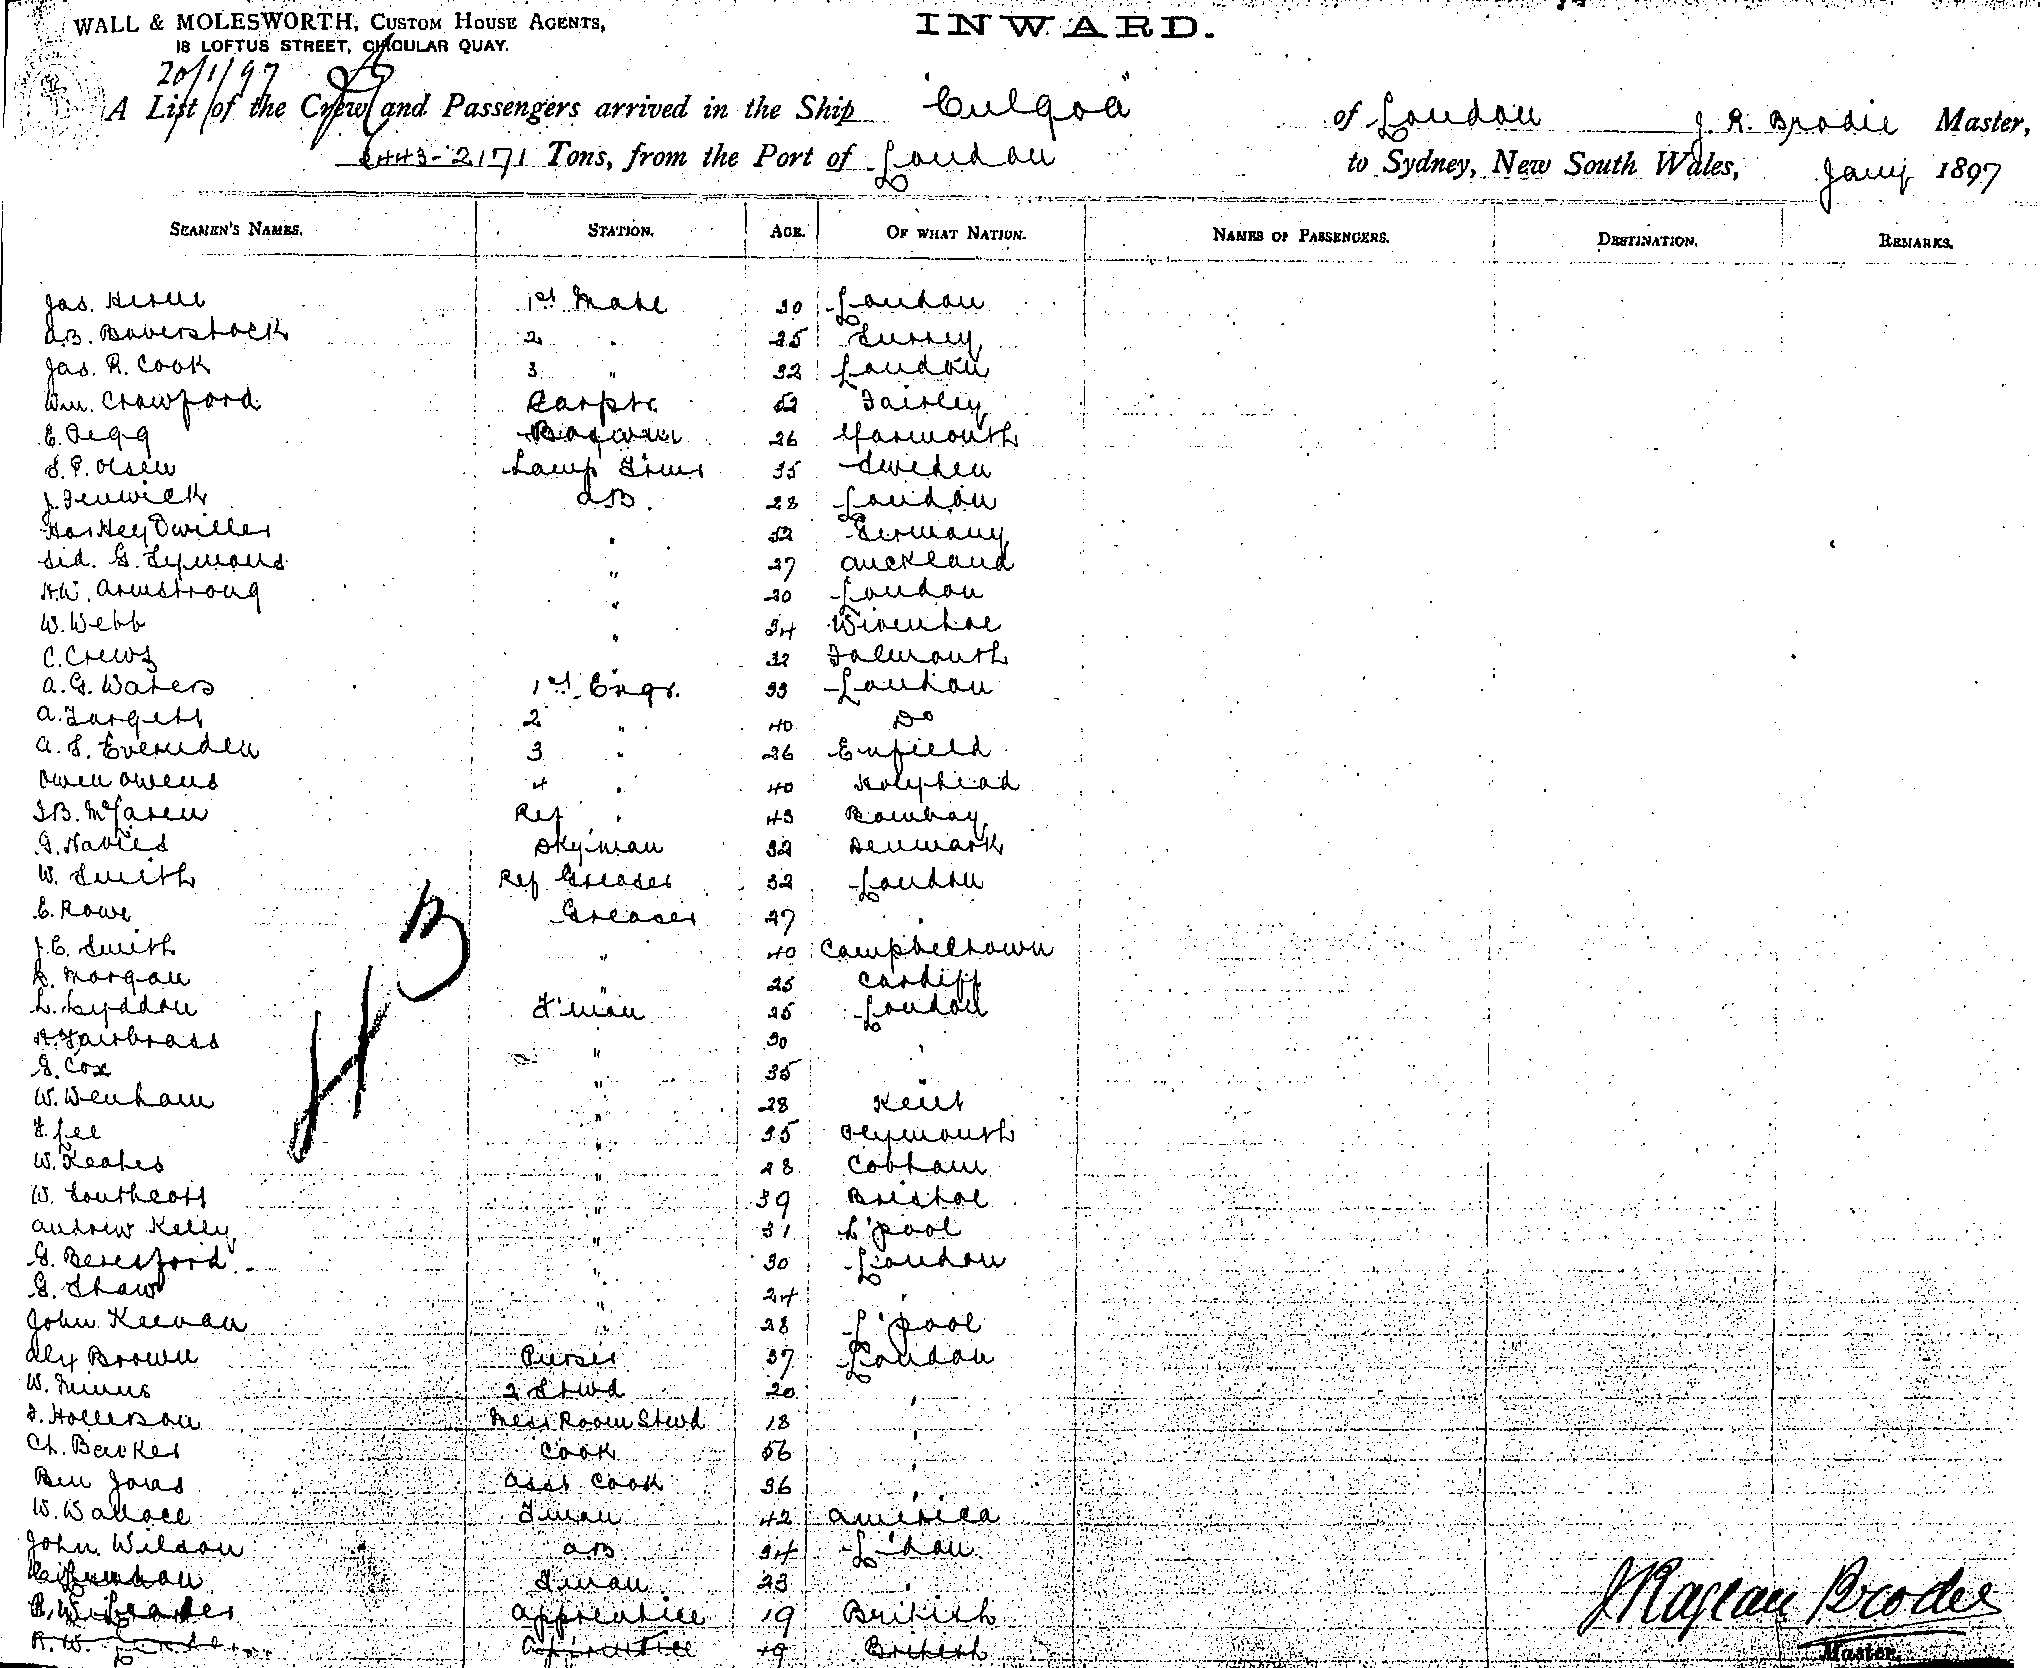 WALL & MOLESWORTH, CUSTOM HOUSE AGENTS,
18 LOFTUS STREET, CIRCULAR QUAY.
INWARD.
20/1/97
A List of the Crew and Passengers arrived in the Ship "Culgoa" of London J. R. Brodie Master,
2171 Tons, from the Port of London to Sydney, New South Wales, Jany 1897
SEAMEN'S NAMES. STATION. AGE. OF WHAT NATION. NAMES OF PASSENGERS. DESTINATION. REMARKS.
Jas. 1st Mate 30 London
A.B. Baverstock 2 " 25 Surrey
Jas. R. Cook 3 " 32 London
Wm. Crawford Carptr 52
E. Pegg Boswain 26 Yarmouth
S. P. Olsen Lamp Trimr 35 Sweden
J. Fenwick AB. 28 London
" 52 Germany
Sid. G. Symons " 27 Auckland
H.W. Armstrong " 20 London
W. Webb " 34 Wivenhoe
C. Crews " 32 Falmouth
A. G. Waters 1st Engr. 33 London
A. Targett 2 " 40 Do
A. S. Evernden 3 " 26 Enfield
Owen Owens 4 " 40 Holyhead
McLaren Ref " 43 Bombay
Dkyman 32 Denmark
W. Smith Ref Greaser 32 London
E. Rowe Greaser 27 "
J. C. Smith " 40 Campbeltown
Morgan " 25 Cardiff
L. Lyddon F'man 25 London
Fairbrass " 30 "
G. Cox " 35 "
W. Wenham " 28 Kent
F. Lee " 35 Plymouth
W. Keates " 28 Cobham
W. Southcott " 39 Bristol
Andrew Kelly " 31 L'pool
G. Beresford " 30 London
G. Shaw " 24 "
John Keevan " 28 L'pool
Alx Brown Purser 37 London
W. 2 Stwd 20 "
Mess Room Stwd 18 "
Ch. Barker Cook 56 "
Ben Jonas Asst Cook 36 "
W. Wallace F'man 42 America
John Wilson AB 34 L'don
F'man 23 "
Apprentice 19 British
R. W. Apprentice 19 British
HB
J Raglan Brodie
Master.